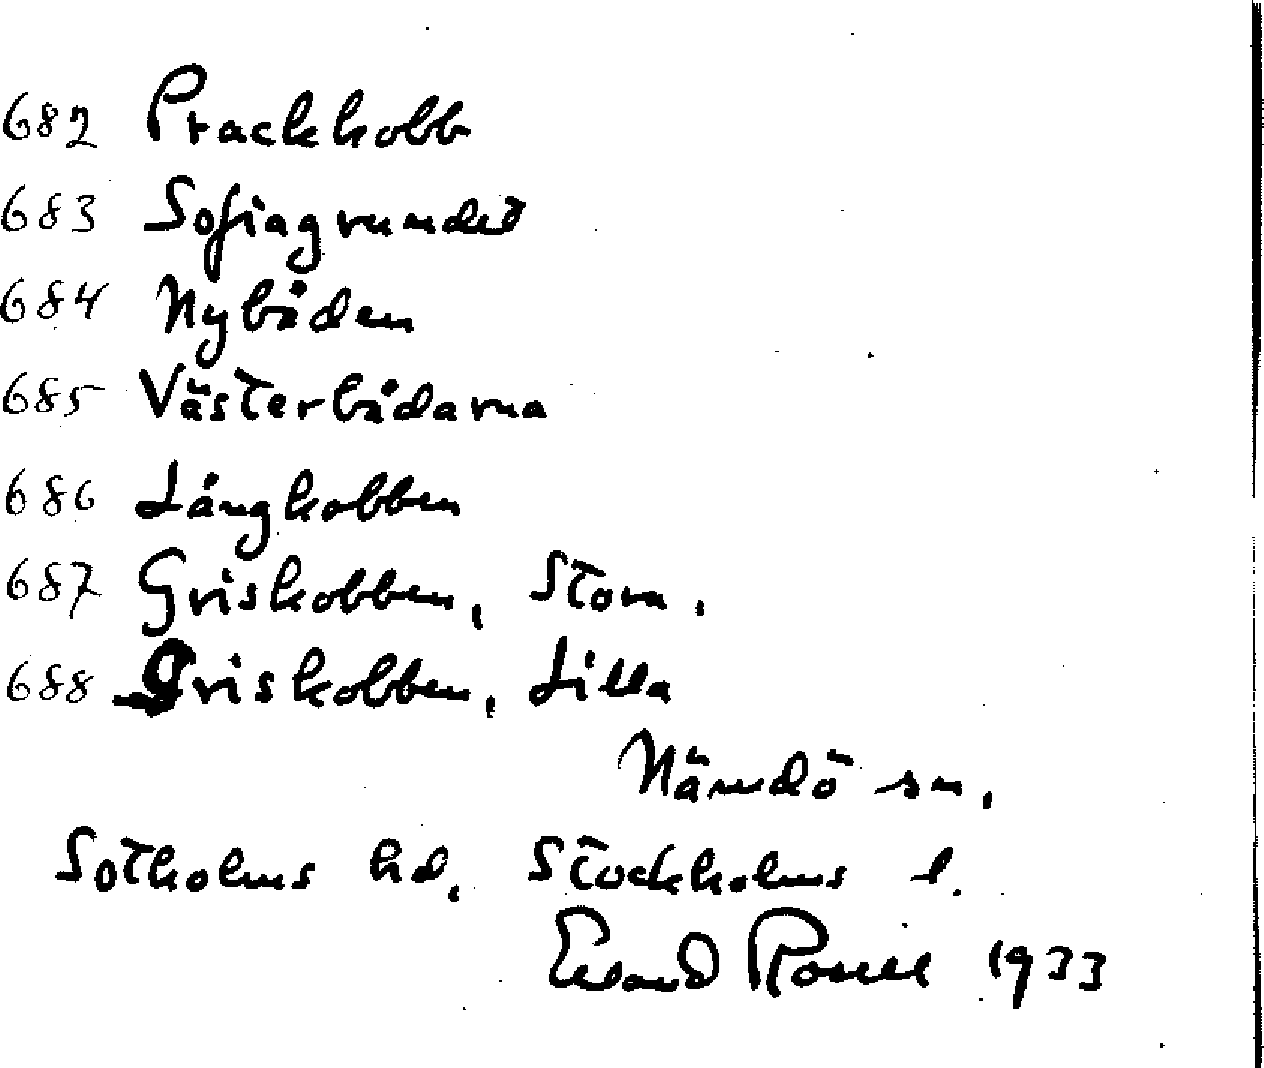 682 Prackkobb
683 Sofiagrundet
684 Nybåden
685 Västerbådarna
686 Långkobben
687 Griskobben, Stora,
688 Griskobben, Lilla
Nämdö sn,
Sotholms hd, Stockholms l.
1933